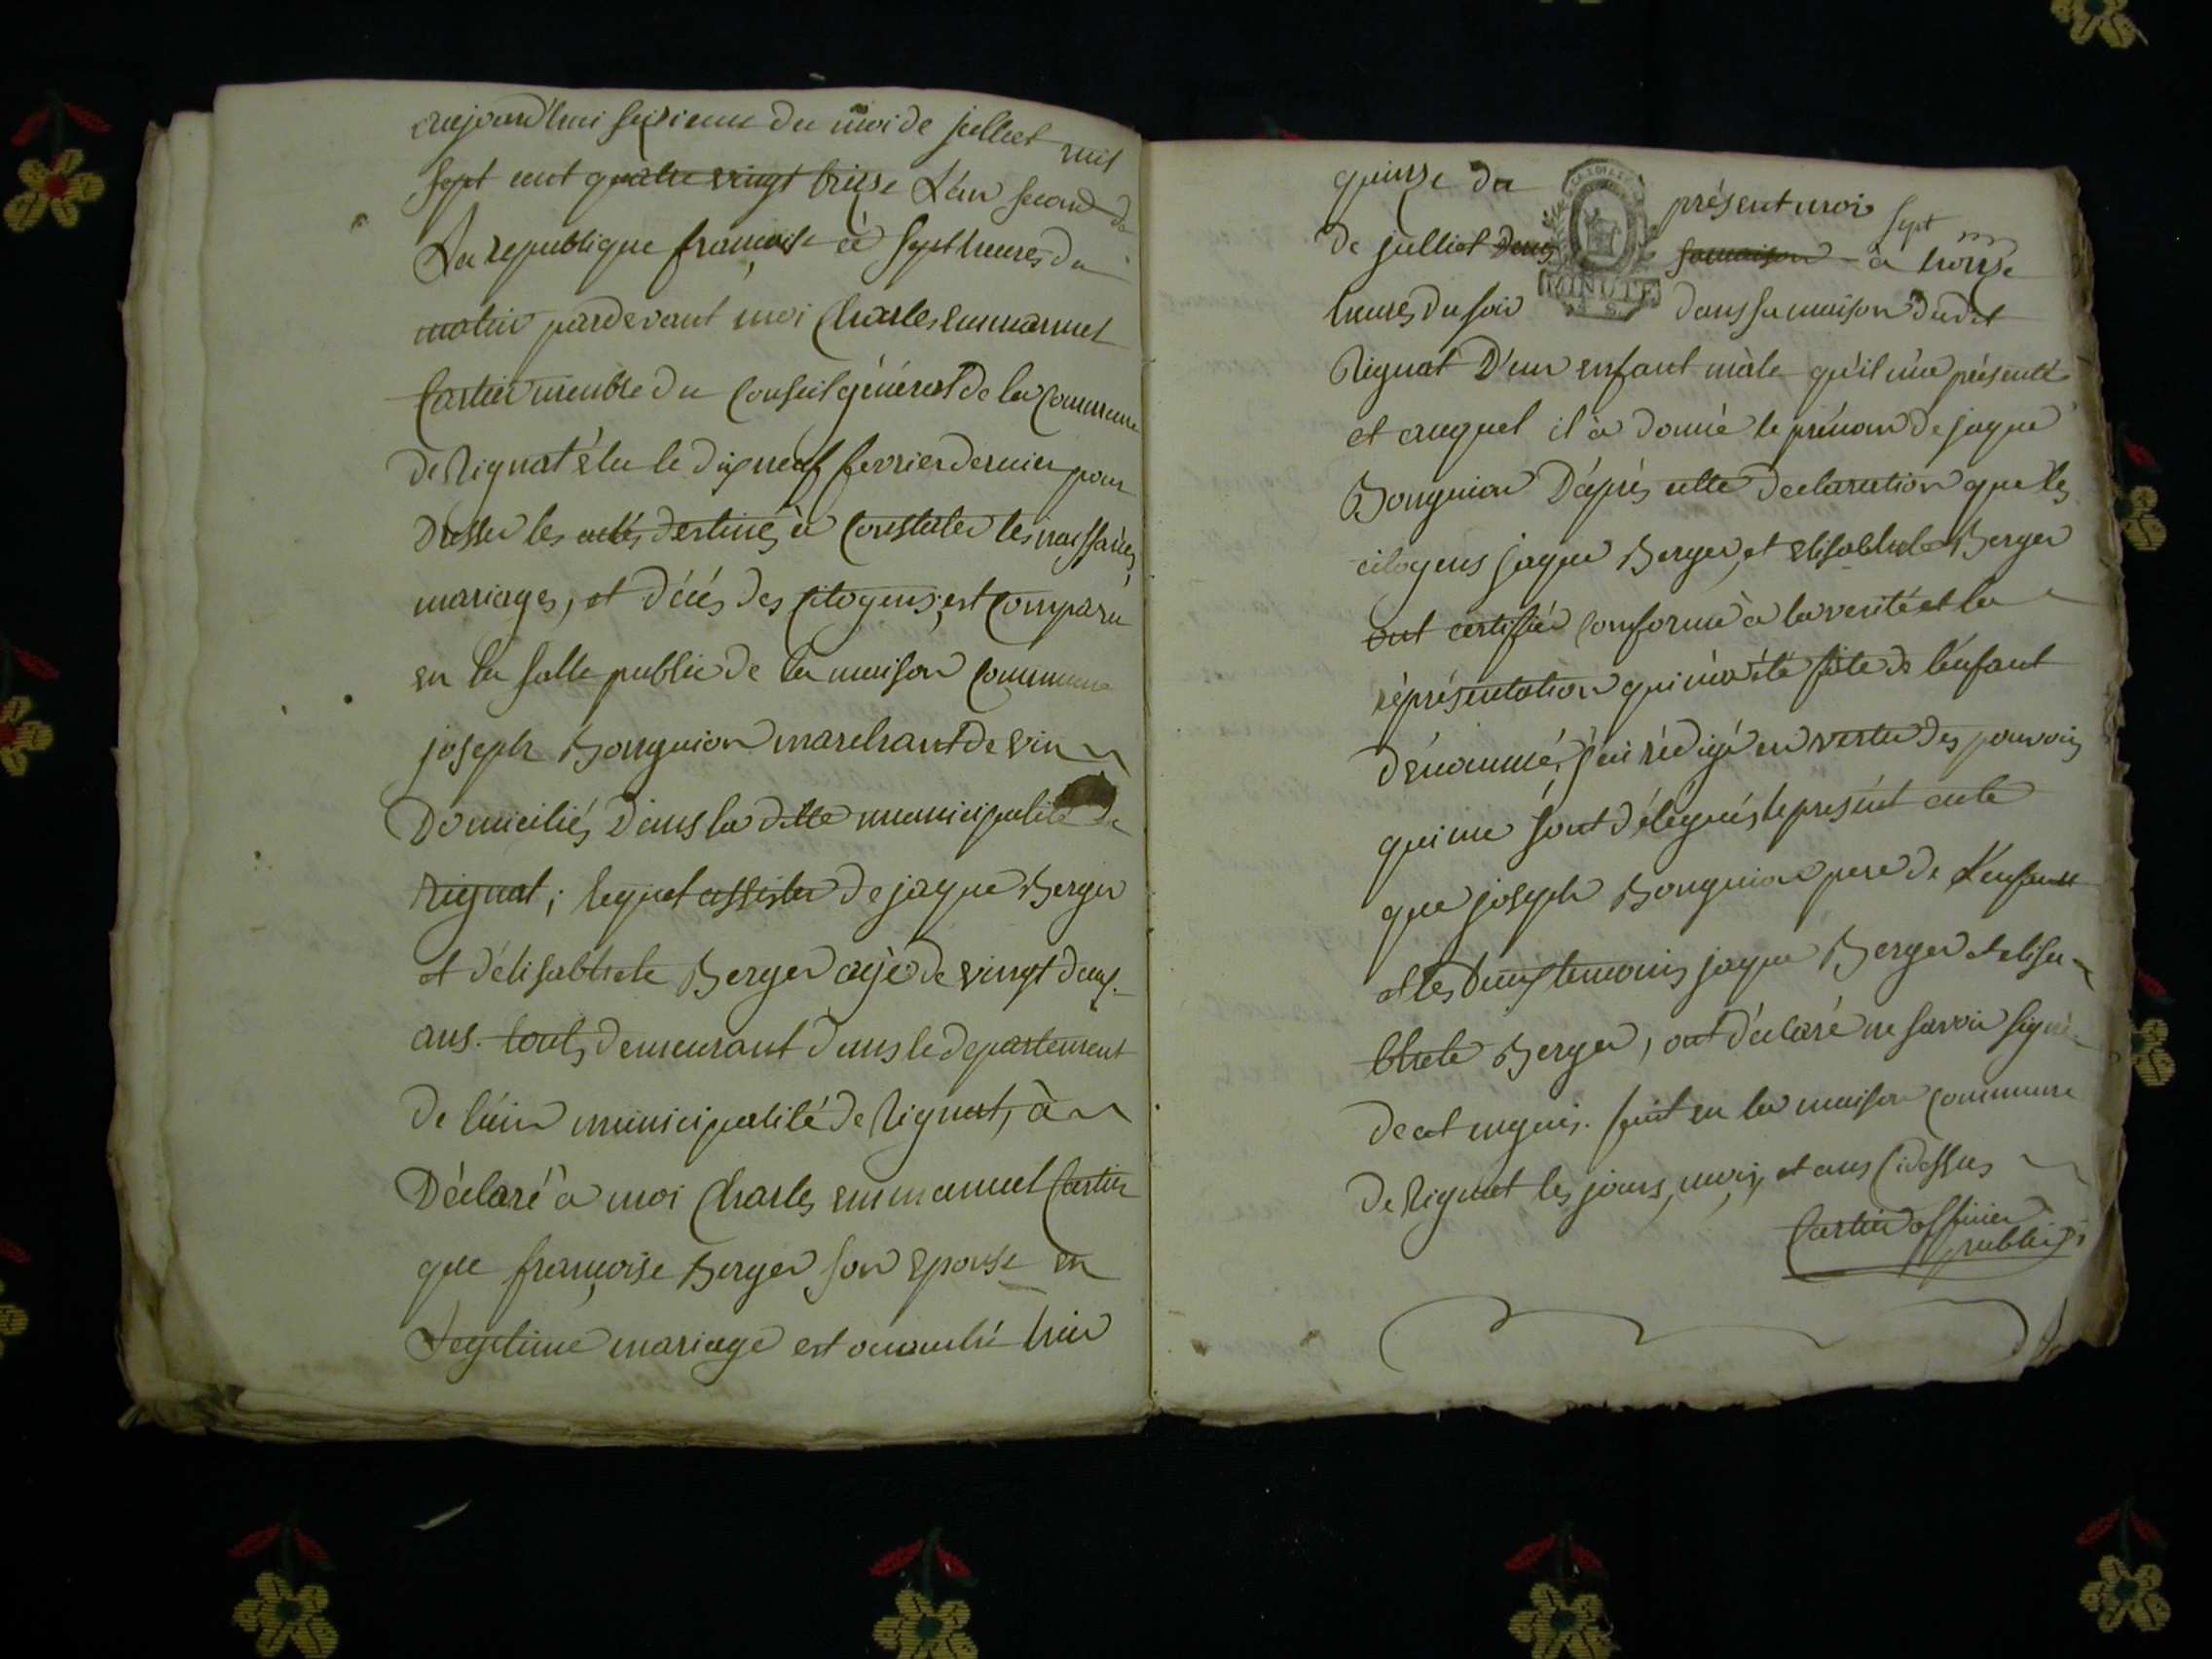 aujourd'hui seizieme du moi de julliet mil
sept cent quatre vingt treise L'an second de
La republique françoise à sept heures du
matin pardevant moi Charles emmanuel
Cartier membre du Conseil général de la Commune
de Rignat élu le dix neuf fevrier dernier pour
dresser les actes destinés à Constater les naissances,
mariages, et décés des Citoyens; est Comparu
en la salle public de la maison Commune
joseph Bonguion marchant de vin
Domicilié dans la ditte municipalité de
Rignat; lequel assister de jaque Berger
et d'élisabhete Berger agé de vingt deux
ans. touts demeurant dans le departement
de l'ain municipalité de Rignat, à
Déclaré à moi Charles emmanuel Cartier
que françoise Berger son epouse en
Legitime mariage est accouchée hier
quinze du présent mois
de julliet dans sa maison à sept
heures du soir dans sa maison dudit
Rignat D'un enfant mâle qu'il m'a présenté
et auquel il à donné le prénom de jaque
Bonguion D'après cette declaration que les
citoyens jaque Berger, et elisabhete Berger
ont certifié conforme à la verité et la
réprésentation qui m'a été faite de l'enfant
dénommé, j'ai rédigé en vertu des pouvoirs
qui me sont délégués le present acte
que joseph Bonguion pere de L'enfant
et les deux temoins jaque Berger et elisa
bhete Berger, ont déclaré ne savoir signé
de ce enquis. fait en la maison commune
de Rignat les jours, mois, et ans Cidessus
Cartier officier
public
MINUTE